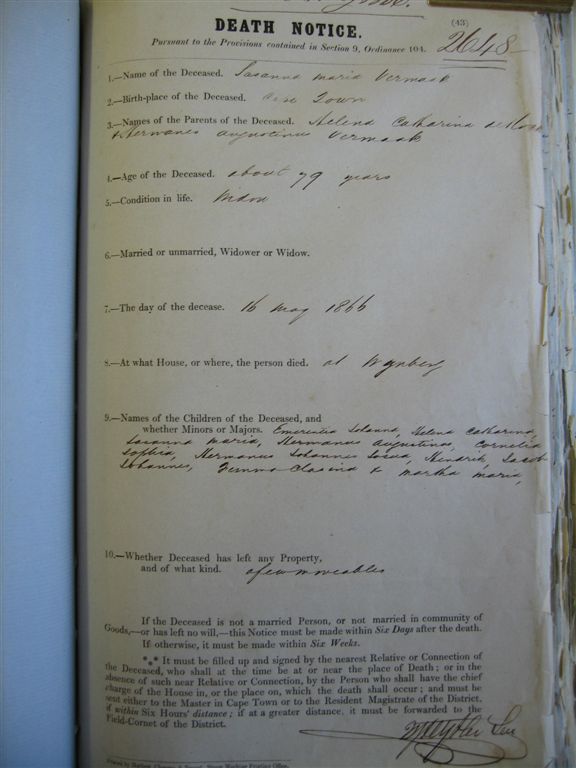 (43)
DEATH NOTICE.
2648
Pursuant to the Provisions contained in Section 9, Ordinance 104.
1.—Name of the Deceased. Susanna Maria Vermaak
2.—Birth-place of the Deceased. Town
3.—Names of the Parents of the Deceased. Helena Catharina
& Hermanus Augustinus Vermaak
4.—Age of the Deceased. about 79 years
5.—Condition in life. Widow
6.—Married or unmarried, Widower or Widow.
7.—The day of the decease. 16 May 1866
8.—At what House, or where, the person died. at Wynberg
9.—Names of the Children of the Deceased, and
whether Minors or Majors. Emerentia Helena Catharina,
Susanna Maria, Hermanus Augustinus, Cornelia
Sophia, Hermanus Johannes Josua, Hendrik Jacob
Johannes, & Martha Maria,
10.—Whether Deceased has left any Property,
and of what kind. a few moveables
If the Deceased is not a married Person, or not married in community of
Goods,—or has left no will,—this Notice must be made within Six Days after the death.
If otherwise, it must be made within Six Weeks.
*** It must be filled up and signed by the nearest Relative or Connection of
the Deceased, who shall at the time be at or near the place of Death; or in the
absence of such near Relative or Connection, by the Person who shall have the chief
charge of the House in, or the place on, which the death shall occur; and must be
sent either to the Master in Cape Town or to the Resident Magistrate of the District,
if within Six Hours' distance; if at a greater distance, it must be forwarded to the
Field-Cornet of the District.